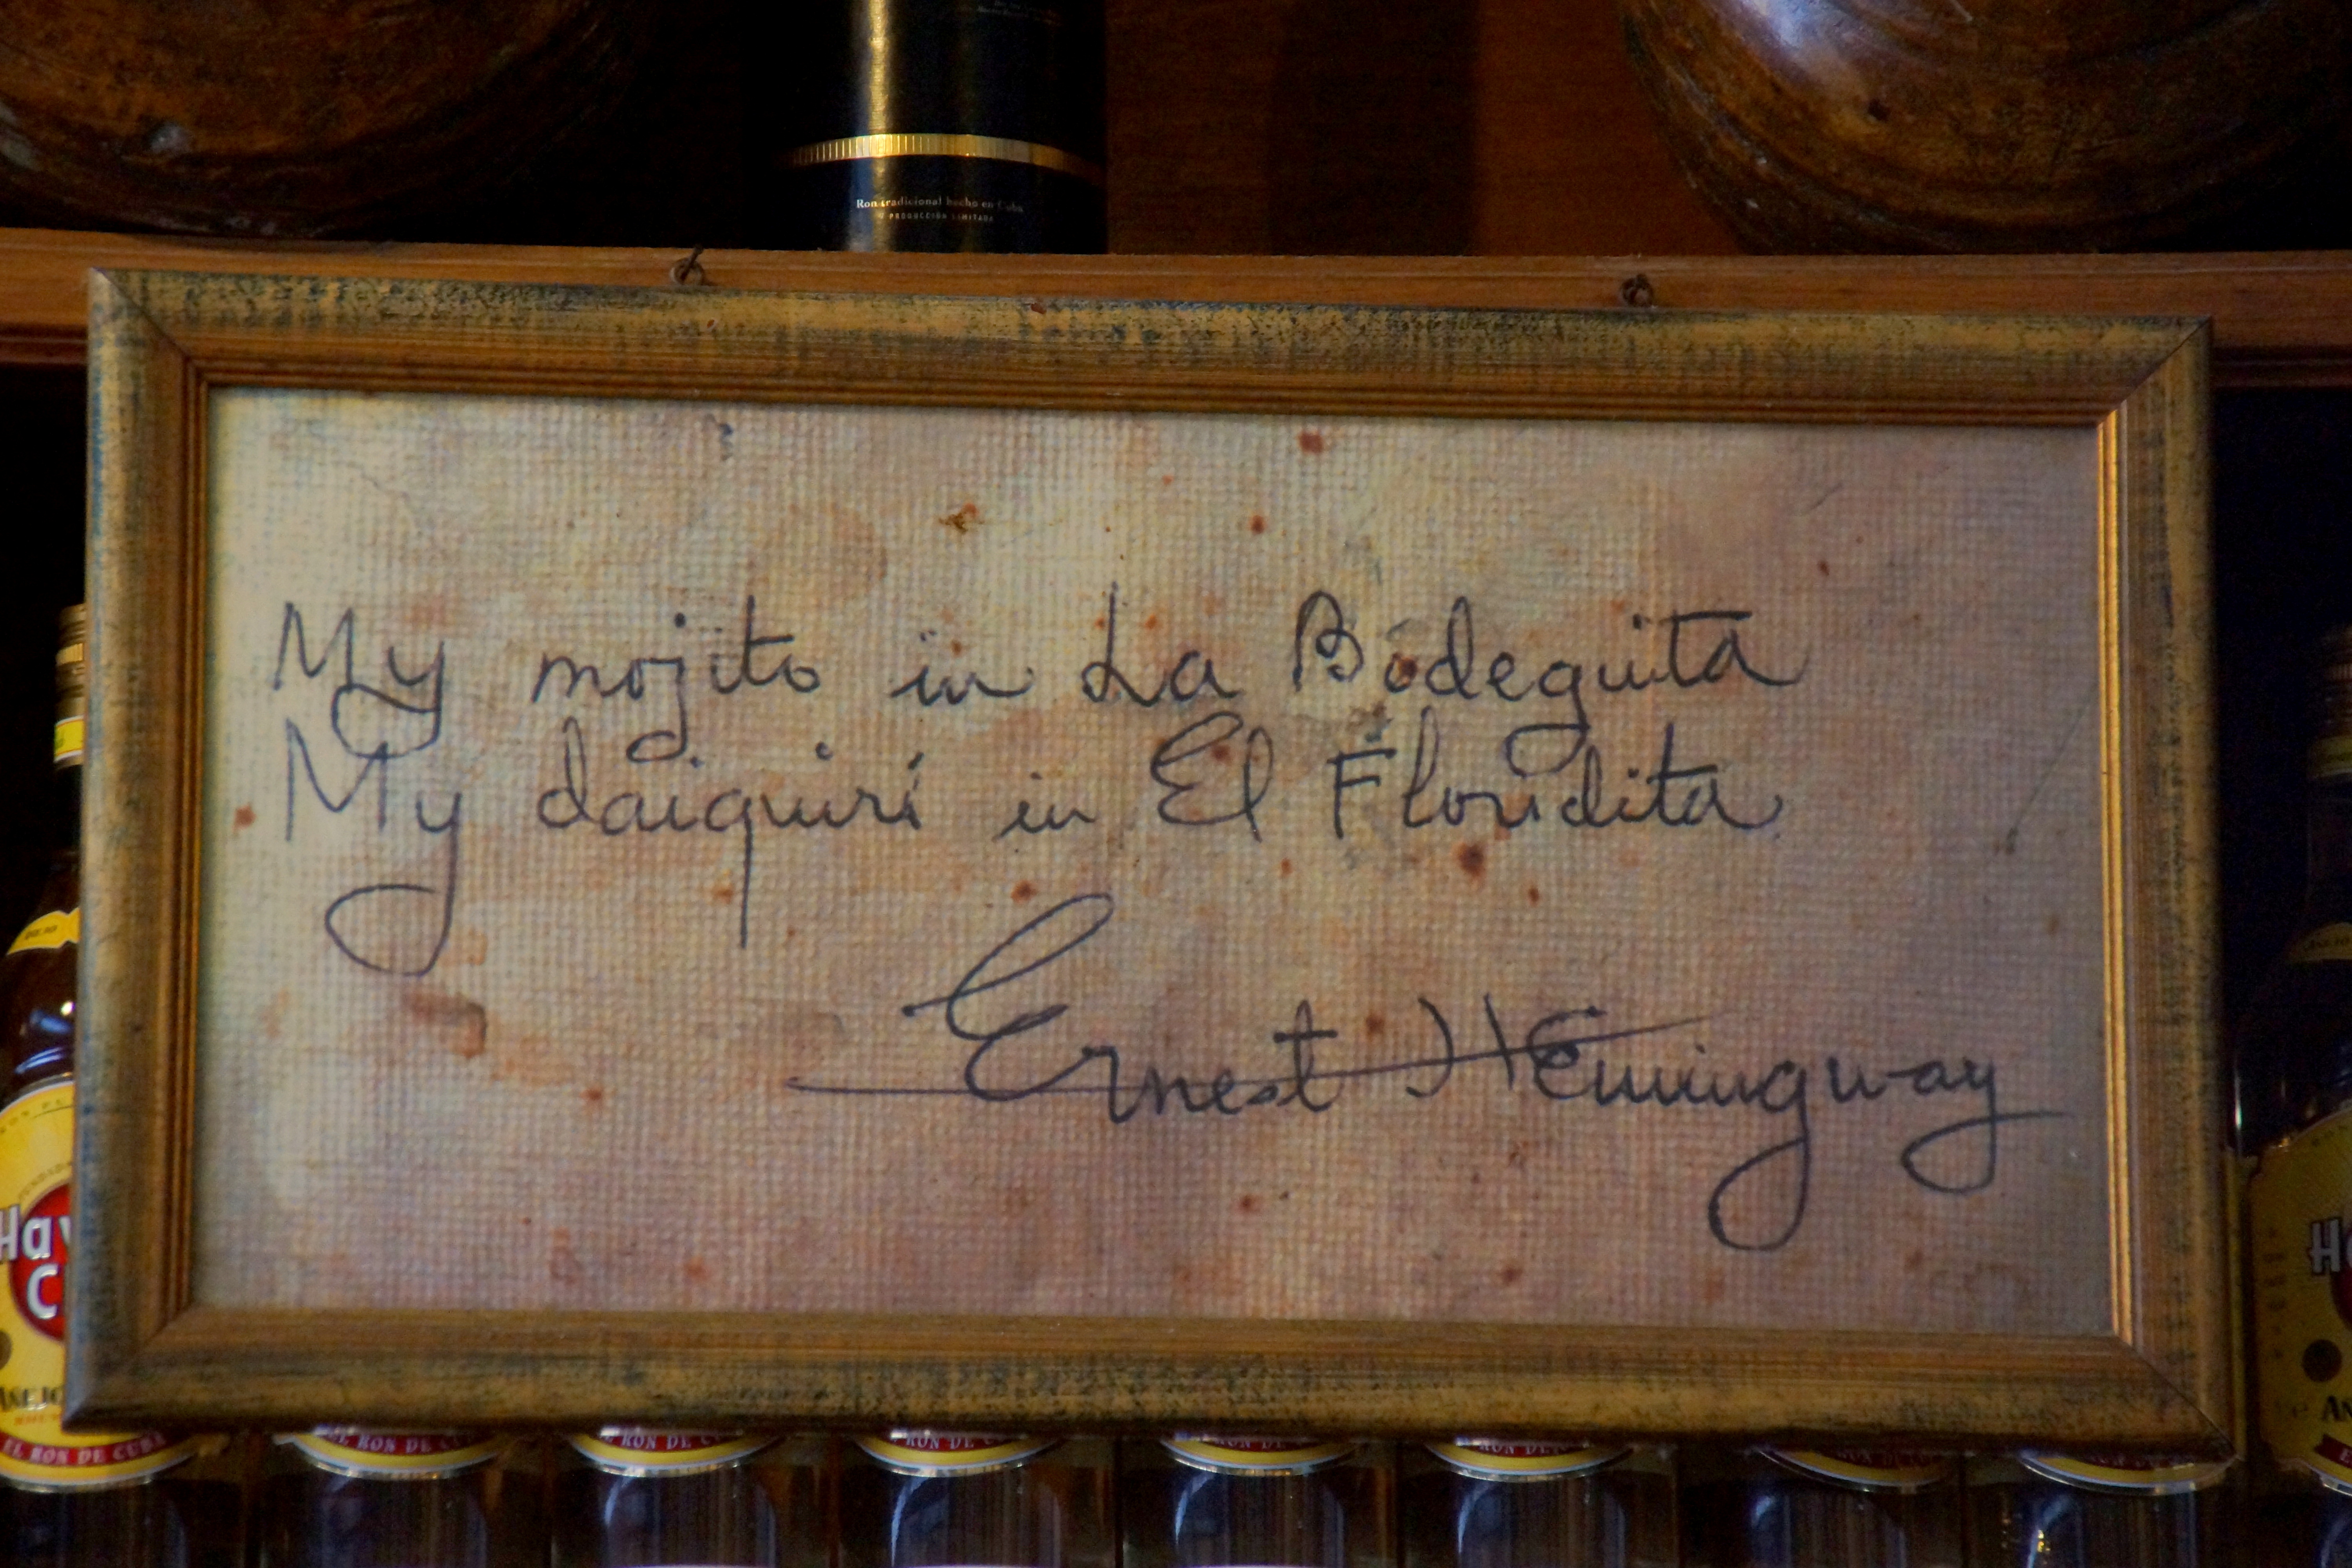 Ron tradicional hecho en Cuba
PRODUCCIÓN LIMITADA
My mojito in La Bodeguita
My daiquirí in El Floridita
Ernest Hemingway
Hav
C
AÑEJO
EL RON DE CUBA
EL RON DE CU
RON DE C
RON DE
RON DE
RON DE